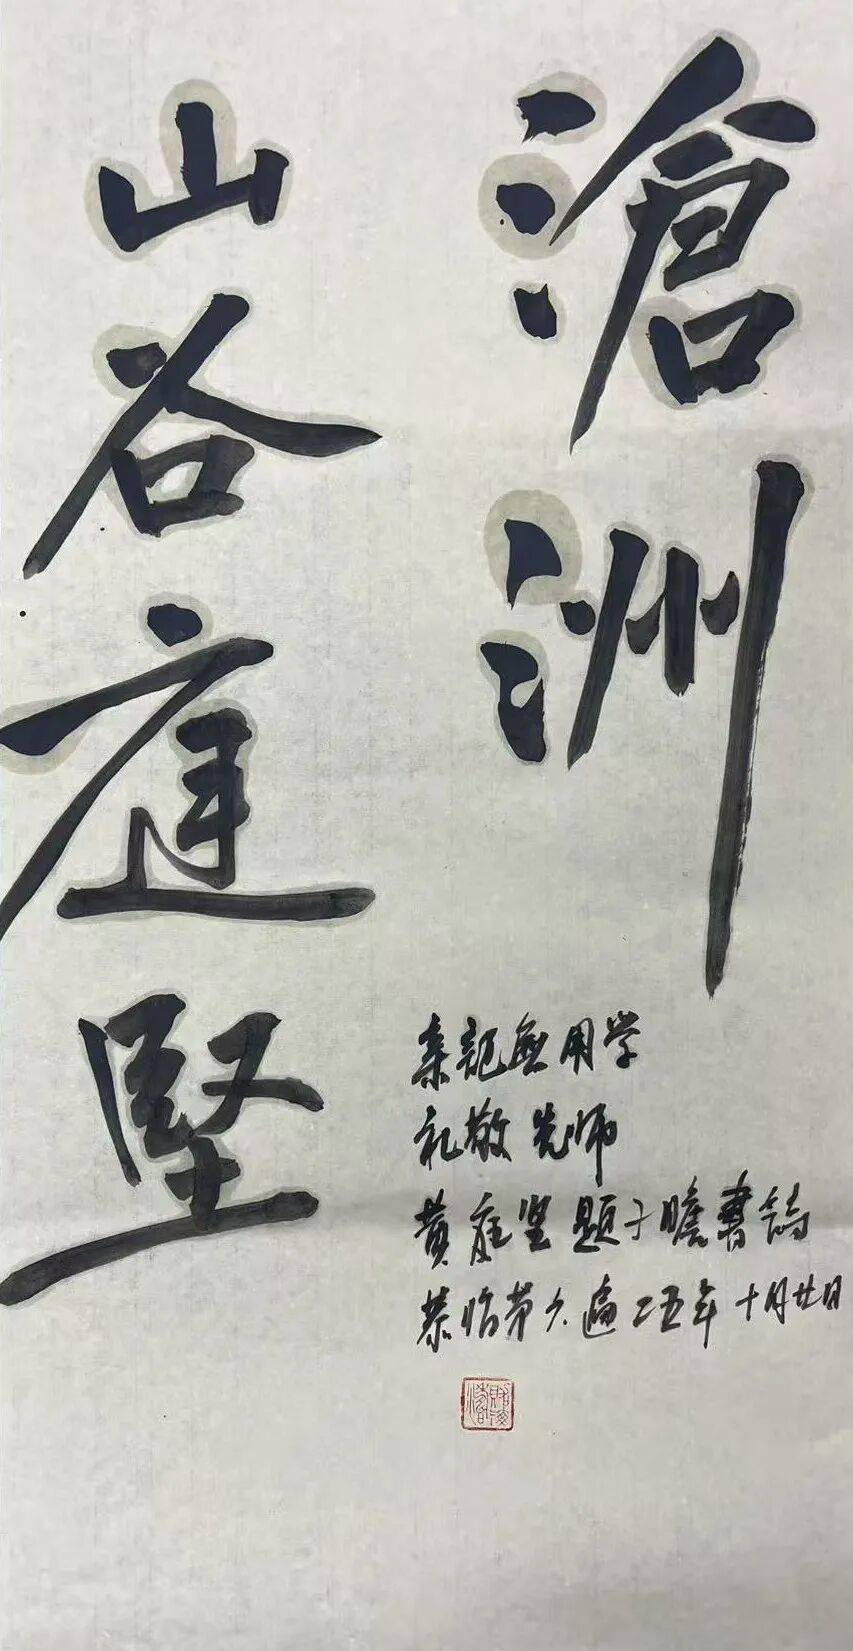 滄洲
山谷庭堅
秉記無用学
礼敬先师
黄庭坚题子瞻書詩
恭临第六遍二五年十月廿日